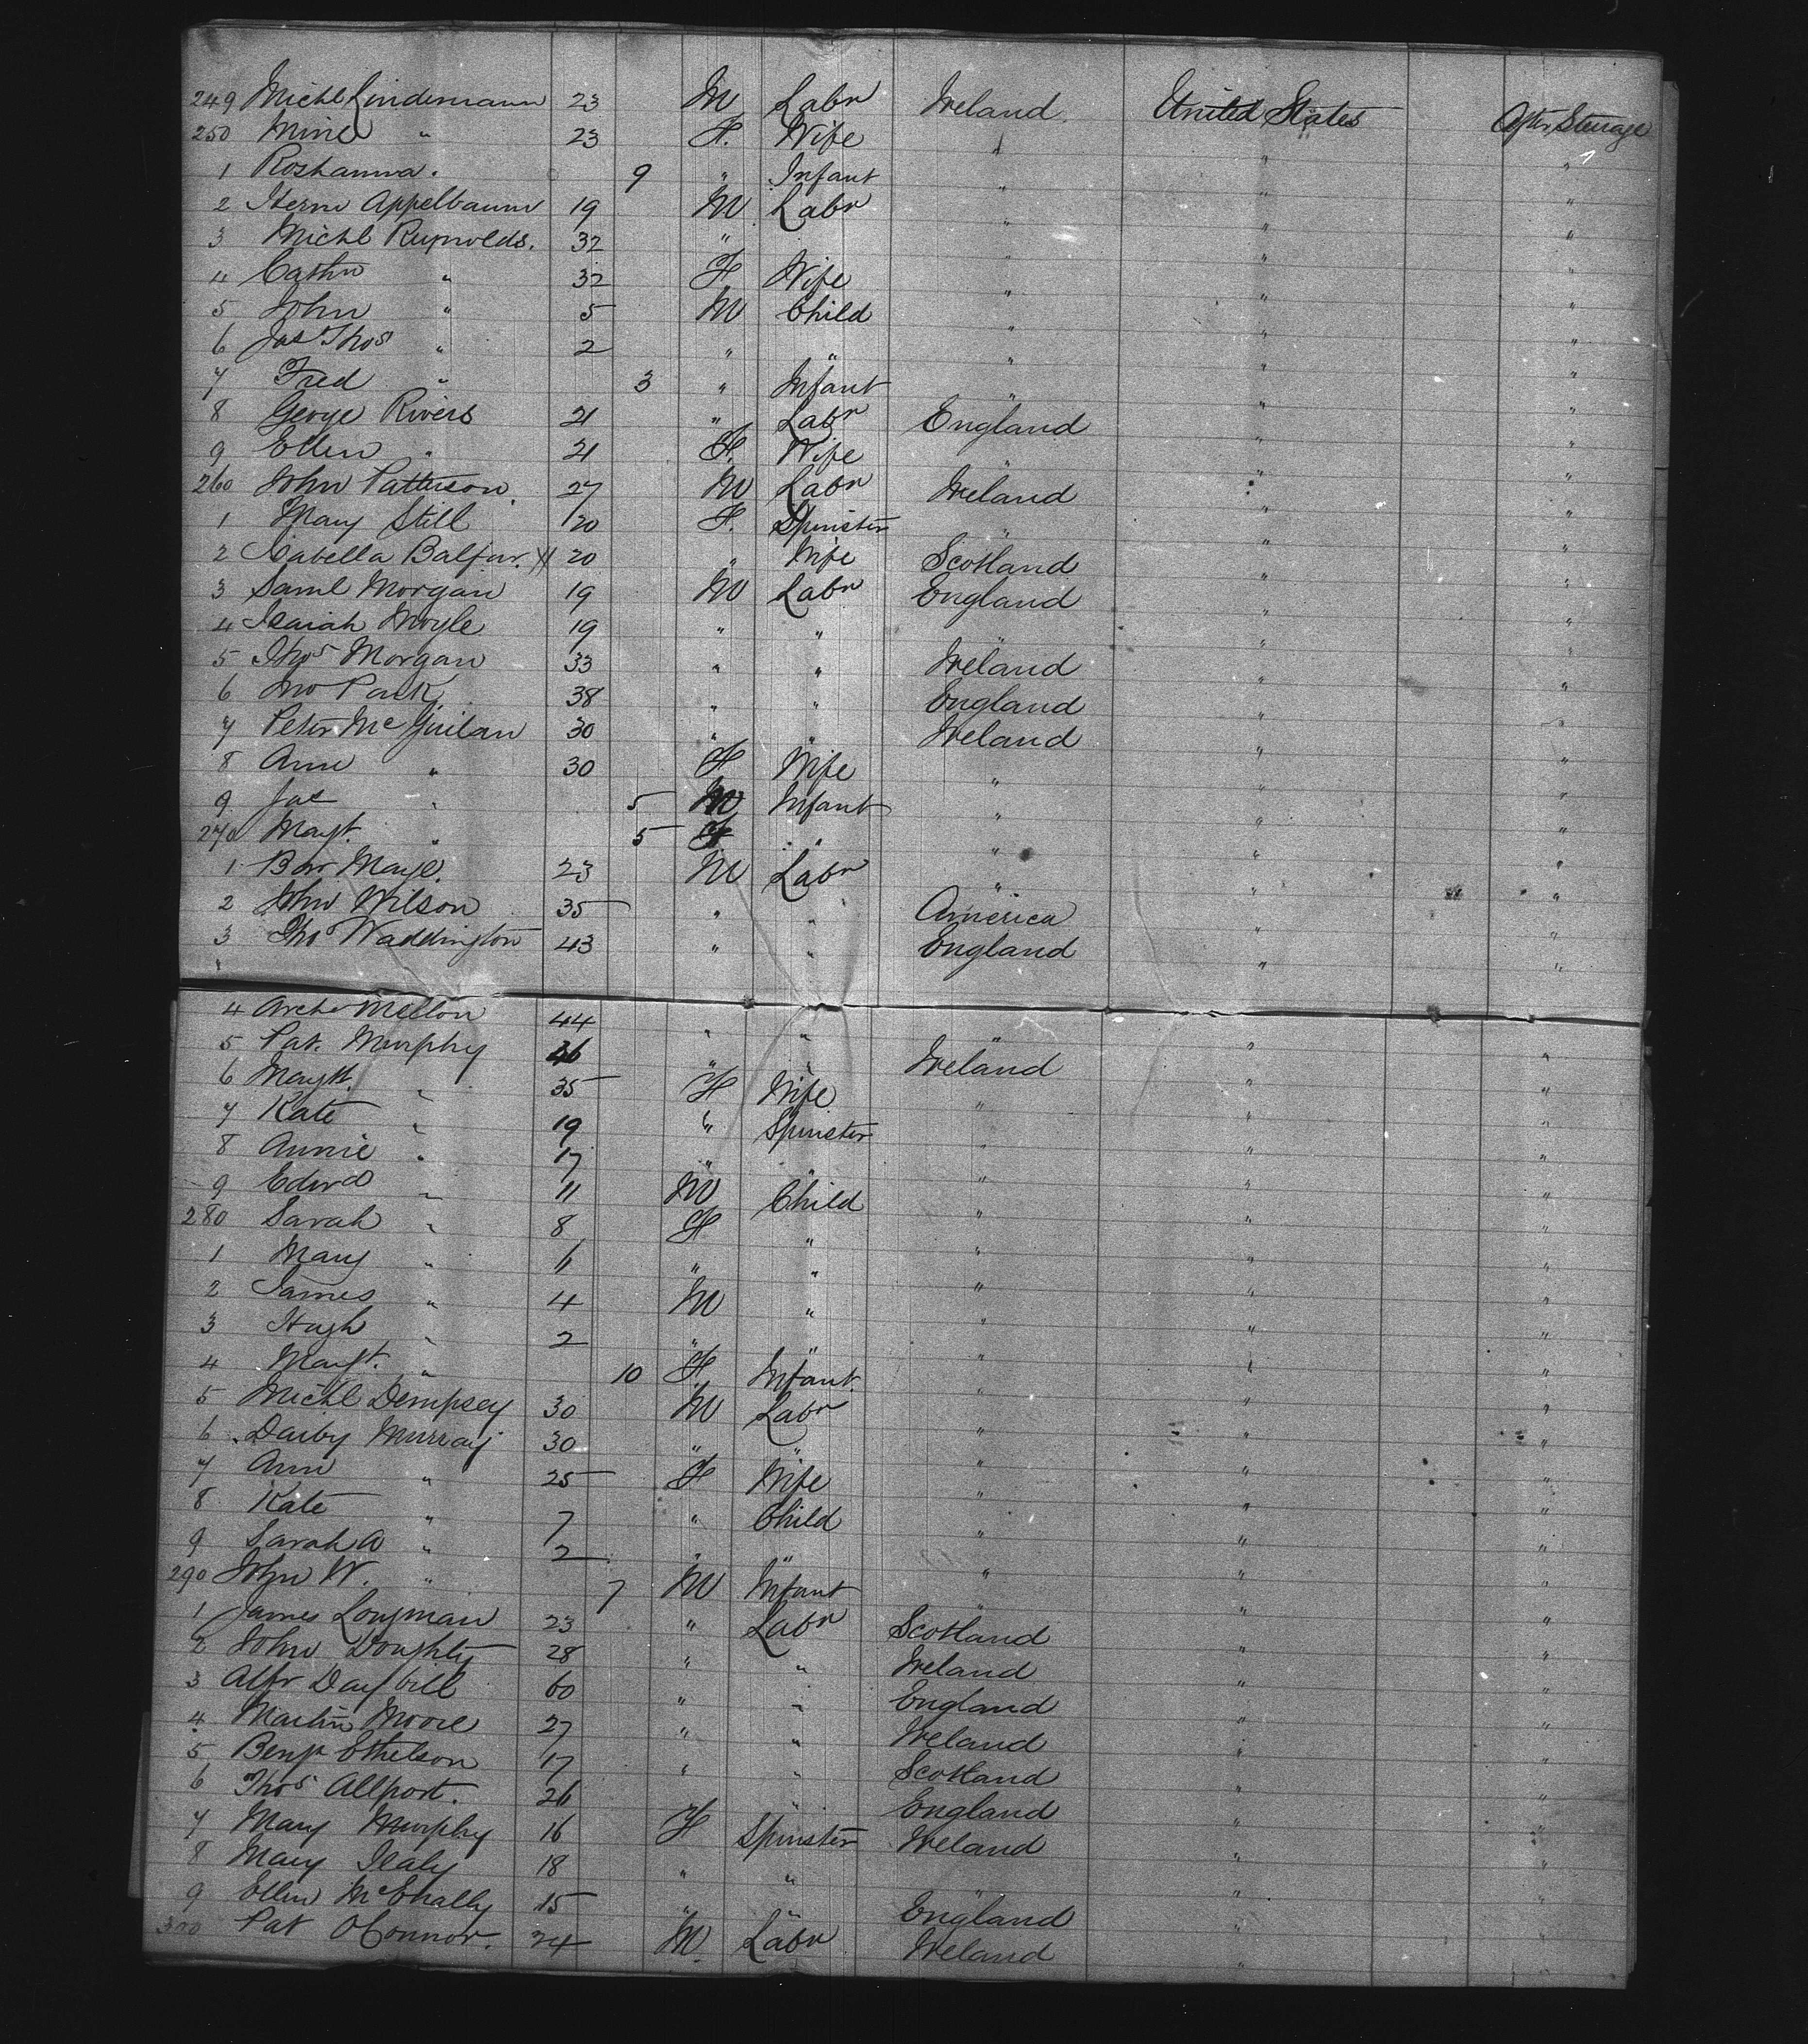 249 Michl Lindemann 23 M Labr Ireland United States Aftr Steerage
250 Mine " 23 F. Wife " " "
1 Roshanna. 9 " Infant " " "
2 Herm Appelbaum 19 M Labr " " "
3 Michl Reynolds. 32 " " " "
4 Cathn " 32 F Wife " " "
5 John " 5 M Child " " "
6 Jas Thos " 2 " " " " "
7 Fred " 3 " Infant " " "
8 George Rivers 21 " Labr England " "
9 Ellen " 21 F. Wife " " "
260 John Patterson. 27 M Labr Ireland " "
1 Mary Still 20 F. Spinster " " "
2 Isabella Balfur. X 20 " Wife Scotland " "
3 Saml Morgan 19 M Labr England " "
4 Isaiah Moyle 19 " " " "
5 Thos Morgan 33 " " Ireland " "
6 Jno Park 38 " " England " "
7 Peter McGuilan 30 " " Ireland " "
8 Ann " 30 F Wife " " "
9 Jas " 5 M Infant " " "
270 Magt. " 5 F " " " "
1 23 M Labr " " "
2 John Wilson 35 " " America " "
3 Tho Waddington 43 " " England " "
4 Archd Mellon 44 " " " " "
5 Pat. Murphy 46 " " Ireland " "
6 Magt. " 35 F Wife " " "
7 Kate " 19 " Spinster " " "
8 Annie " 17 " " " " "
9 Edwd " 11 M Child " " "
280 Sarah " 8 F " " " "
1 Mary " 6 " " " " "
2 James " 4 M " " " "
3 Hugh " 2 " " " " "
4 Magt. " 10 F. Infant. " " "
5 Michl Dempsey 30 M Labr " " "
6 Darby Murray 30 " " " " "
7 Ann " 25 F Wife " " "
8 Kate " 7 " Child " " "
9 Sarah A " 2 " " " " "
290 John W. " 7 M Infant " " "
1 James Longman 23 " Labr Scotland " "
2 John Doughty 28 " " Ireland " "
3 Alfr Daybill 60 " " England " "
4 Martin Moore 27 " " Ireland " "
5 Benjn Ethelson 17 " " Scotland " "
6 Thos Allport. 26 " England " "
7 Mary Murphy 16 F Spinster Ireland " "
8 Mary Healy 18 " " " "
9 Ellen McEnally 15 " " England " "
300 Pat OConnor. 24 M. Labr Ireland " "